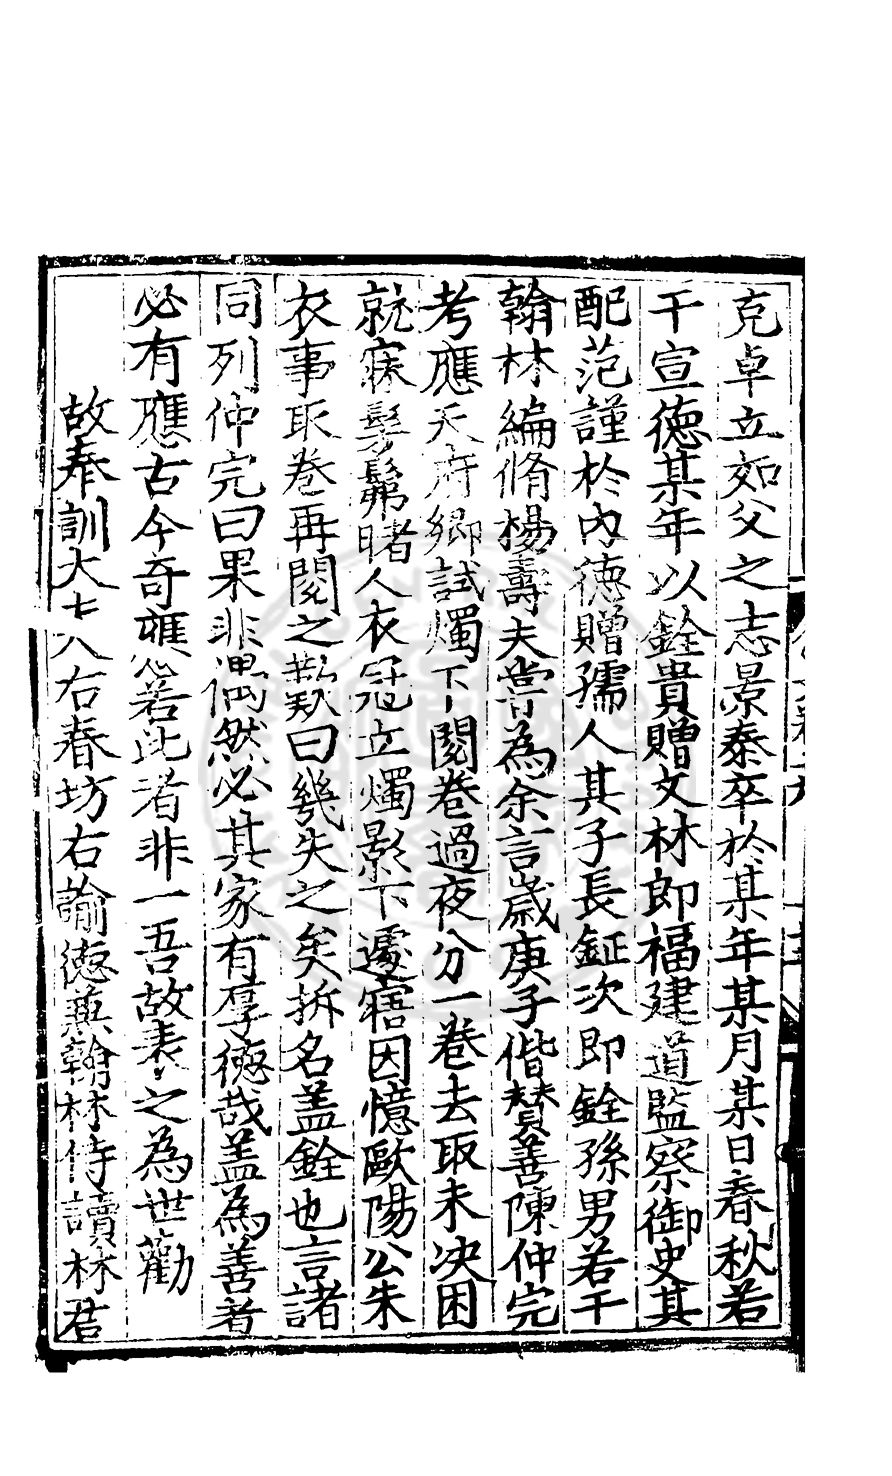 克卓立如父之志景泰卒於某年某月某日春秋若
干宣德某年以銓貴贈文林郎福建道監察御史其
配范謹於內德贈孺人其子長鉦次即銓孫男若干
翰林編脩楊壽夫嘗為余言歲庚子偕贊善陳仲完
考應天府鄉試燭下閱卷過夜分一卷去取未決困
就寐髣髴睹人衣冠立燭影下遽寤因憶歐陽公朱
衣事取卷再閱之歎曰幾失之矣拆名盖銓也言諸
同列仲完曰果非偶然必其家有厚德哉盖為善者
必有應古今奇應若此者非一吾故表之為世勸
故奉訓大夫右春坊右諭德兼翰林侍讀林君